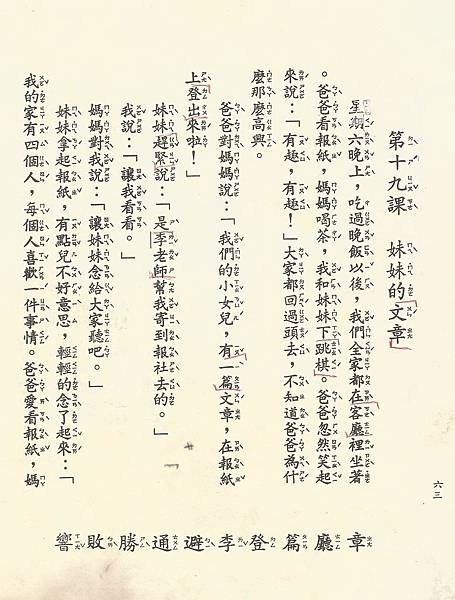 第十九課　妹妹的文章
星期六晚上，吃過晚飯以後，我們全家都在客廳裡坐著
。爸爸看報紙，媽媽喝茶，我和妹妹下跳棋。爸爸忽然笑起
來說：「有趣，有趣！」大家都回過頭去，不知道爸爸為什
麼那麼高興。
爸爸對媽媽說：「我們的小女兒，有一篇文章，在報紙
上登出來啦！」
妹妹趕緊說：「是李老師幫我寄到報社去的。」
我說：「讓我看看。」
媽媽對我說：「讓妹妹念給大家聽吧。」
妹妹拿起報紙，有點兒不好意思，輕輕的念了起來：「
我的家有四個人，每個人喜歡一件事情。爸爸愛看報紙，媽
六三
章廳篇登李避通勝敗響